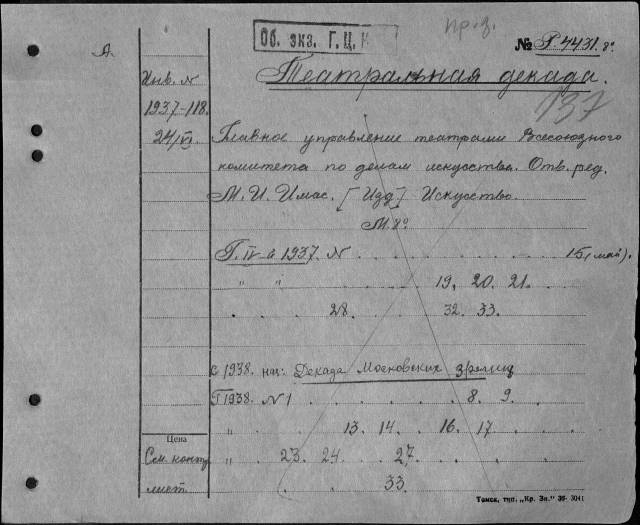 пр.г.
Об. экз. Г.Ц.К
№ Р.4431. 8°
А.
Театральная декада.
Инв. N
1937-118.
24/VI
137
Главное управление театрами Всесоюзного
комитета по делам искусства. Отв. ред.
М. И. Имас. [Изд] Искусство.
М. 8°
Г. IV-й 1937. N . . . . . . . . 15 (май).
" " . . . . 19, 20. 21.
. . . 28. . . . 32. 33.
С 1938. наз: Декада Московских зрелищ
Г 1938. N 1 . . . . . . 8. 9.
" . . . 13. 14. . 16. 17
" . 23. 24. . 27.
. . . . . 33.
Цена
См. конт.
лист.
Томск, тип. „Кр. Зн." 36- 3041